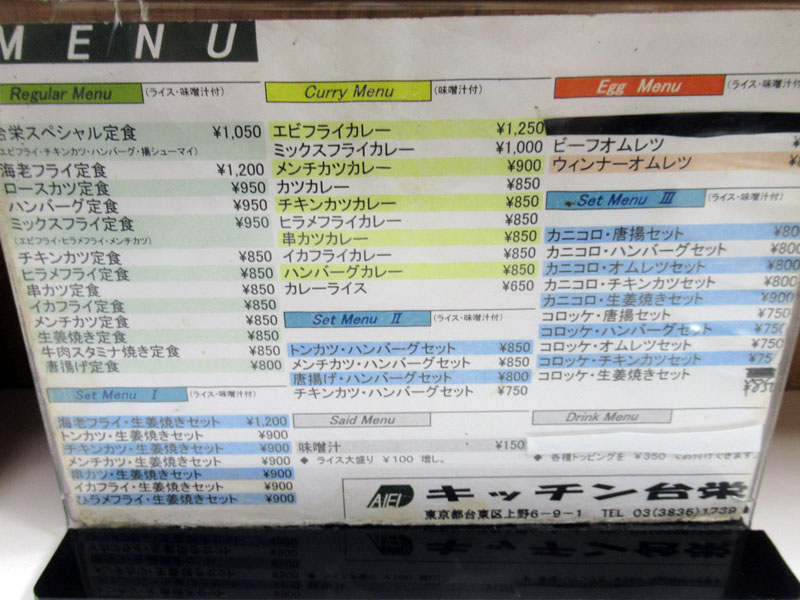 MENU
Regular Menu (ライス・味噌汁付)
台栄スペシャル定食 ¥1,050
(エビフライ・チキンカツ・ハンバーグ・揚シューマイ)
海老フライ定食 ¥1,200
ロースカツ定食 ¥950
ハンバーグ定食 ¥950
ミックスフライ定食 ¥950
(エビフライ・ヒラメフライ・メンチカツ)
チキンカツ定食 ¥850
ヒラメフライ定食 ¥850
串カツ定食 ¥850
イカフライ定食 ¥850
メンチカツ定食 ¥850
生姜焼き定食 ¥850
牛肉スタミナ焼き定食 ¥850
唐揚げ定食 ¥800
Set Menu Ⅰ (ライス・味噌汁付)
海老フライ・生姜焼きセット ¥1,200
トンカツ・生姜焼きセット ¥900
チキンカツ・生姜焼きセット ¥900
メンチカツ・生姜焼きセット ¥900
串カツ・生姜焼きセット ¥900
イカフライ・生姜焼きセット ¥900
ひラメフライ・生姜焼きセット ¥900
Curry Menu (味噌汁付)
エビフライカレー ¥1,250
ミックスフライカレー ¥1,000
メンチカツカレー ¥900
カツカレー ¥850
チキンカツカレー ¥850
ヒラメフライカレー ¥850
串カツカレー ¥850
イカフライカレー ¥850
ハンバーグカレー ¥850
カレーライス ¥650
Set Menu Ⅱ (ライス・味噌汁付)
トンカツ・ハンバーグセット ¥850
メンチカツ・ハンバーグセット ¥850
唐揚げ・ハンバーグセット ¥800
チキンカツ・ハンバーグセット ¥750
Said Menu
味噌汁 ¥150
◆ ライス大盛り ¥100 増し。
Egg Menu (ライス・味噌汁付
ビーフオムレツ ¥
ウィンナーオムレツ ¥
Set Menu Ⅲ (ライス・味噌汁付)
カニコロ・唐揚セット ¥800
カニコロ・ハンバーグセット ¥800
カニコロ・オムレツセット ¥800
カニコロ・チキンカツセット ¥800
カニコロ・生姜焼きセット ¥900
コロッケ・唐揚セット ¥750
コロッケ・ハンバーグセット ¥750
コロッケ・オムレツセット ¥750
コロッケ・チキンカツセット ¥75
コロッケ・生姜焼きセット
Drink Menu
◆ 各種トッピングを ¥350 でお付けできます。
AIEI キッチン台栄
東京都台東区上野6-9-1 TEL 03(3835)1739